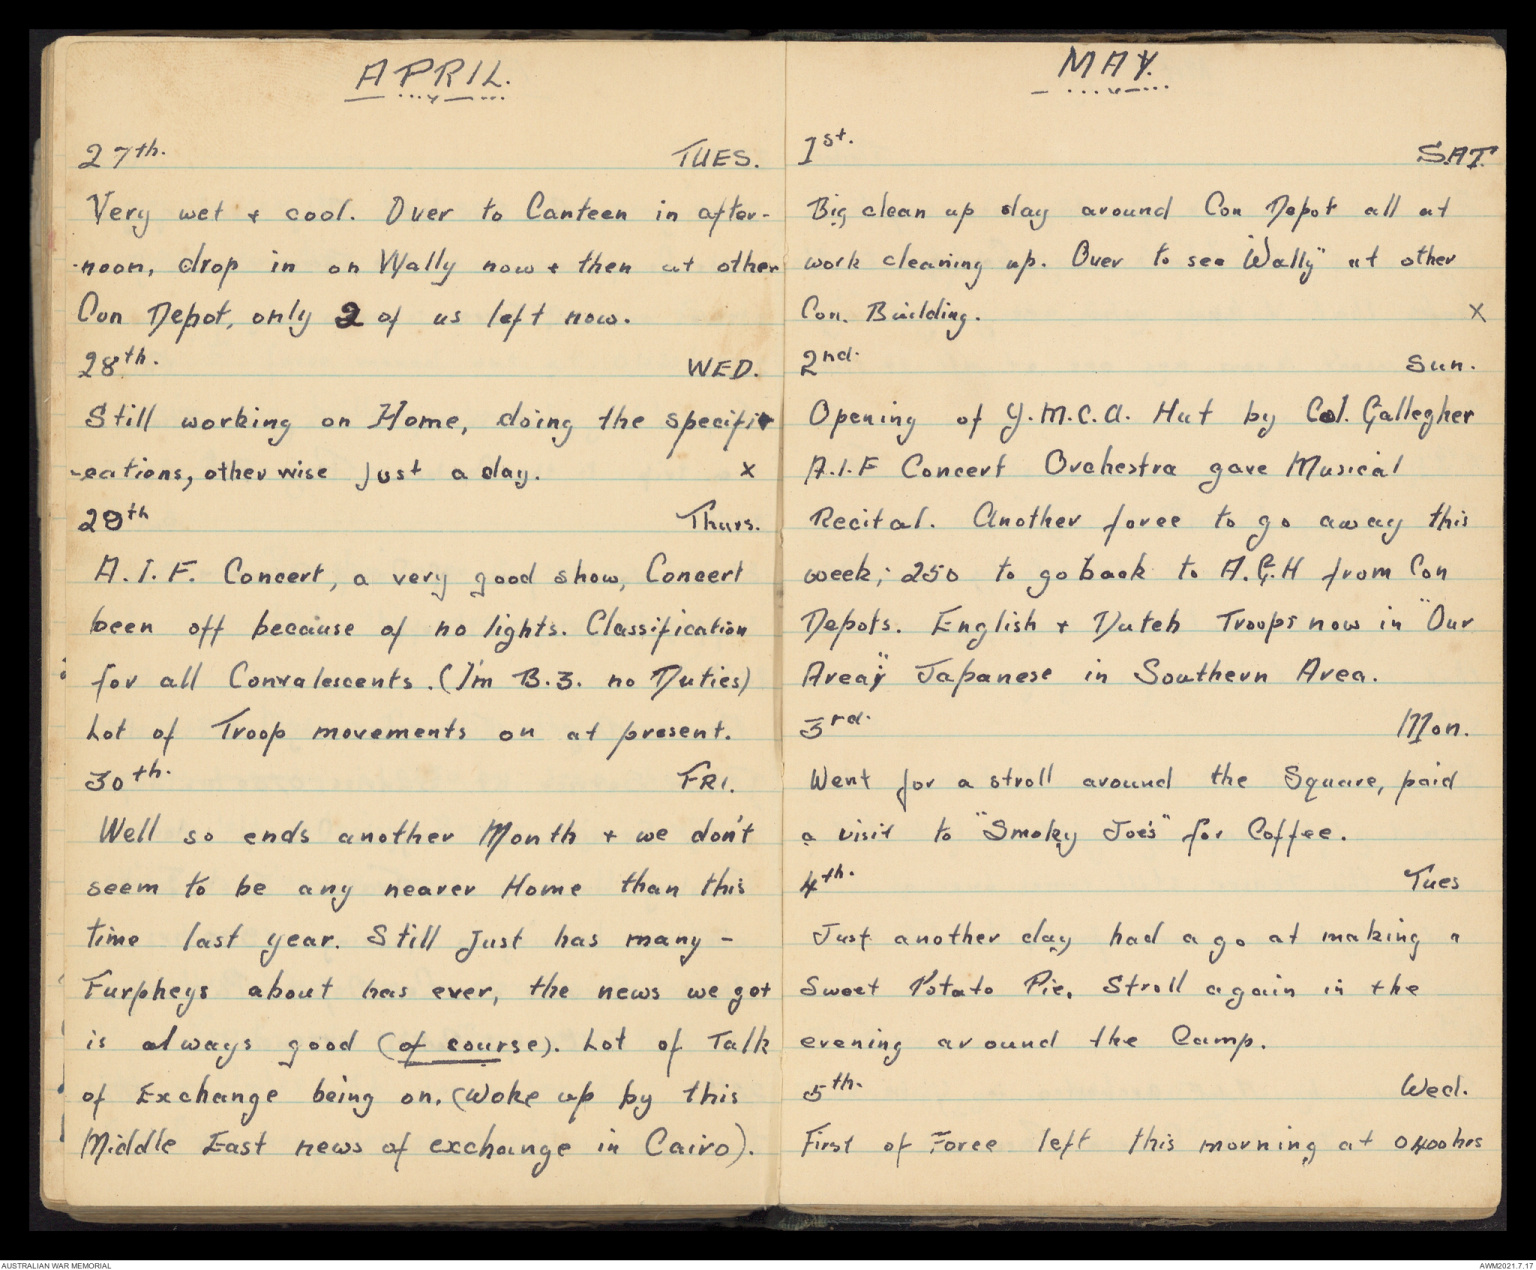 APRIL.
27th. TUES.
Very wet + cool. Over to Canteen in after-
-noon, drop in on Wally now + then at other
Con Depot, only 2 of us left now.
28th. WED.
Still working on Home, doing the specifi-
-cations, otherwise just a day. x
29th Thurs.
A.I.F. Concert, a very good show, Concert
been off because of no lights. Classification
for all Convalescents. (I'm B.3. no Duties)
Lot of Troop movements on at present.
30th. FRI.
Well so ends another Month + we don't
seem to be any nearer Home than this
time last year. Still Just has many -
Furpheys about has ever, the news we get
is always good (of course). Lot of Talk
of Exchange being on. (Woke up by this
Middle East news of exchange in Cairo).
MAY.
1st. SAT.
Big clean up day around Con Depot all at
work cleaning up. Over to see "Wally" at other
Con. Building. x
2nd. Sun.
Opening of Y.M.C.A. Hut by Col. Gallegher
A.I.F Concert Orchestra gave Musical
Recital. Another force to go away this
week; 250 to go back to A.G.H from Con
Depots. English + Dutch Troops now in "Our
Area"; Japanese in Southern Area.
3rd. Mon.
Went for a stroll around the Square, paid
a visit to "Smoky Joe's" for Coffee.
4th. Tues
Just another day had a go at making a
Sweet Potato Pie. Stroll again in the
evening around the Camp.
5th. Wed.
First of Force left this morning at 0400hrs
AUSTRALIAN WAR MEMORIAL
AWM2021.7.17